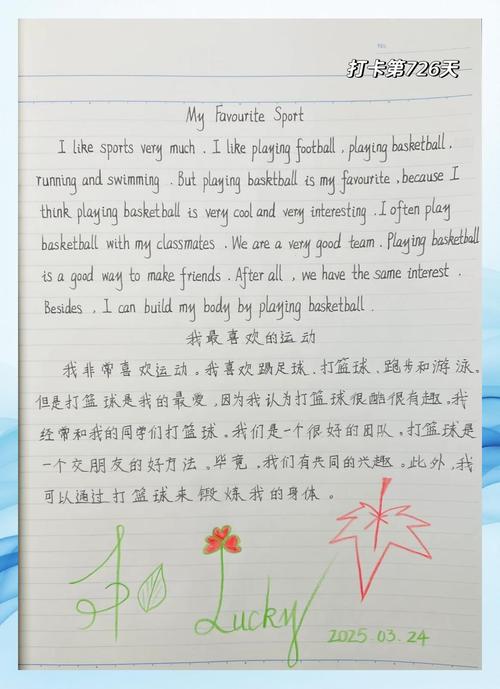 No.
打卡第726天
My Favourite Sport
I like sports very much . I like playing football , playing basketball ,
running and swimming . But playing basktball is my favourite , because I
think playing basketball is very cool and very interesting . I often play
basketball with my classmates . We are a very good team . Playing basketball
is a good way to make friends . After all , we have the same interest .
Besides , I can build my body by playing basketball .
我最喜欢的运动
我非常喜欢运动。我喜欢踢足球、打篮球、跑步和游泳。
但是打篮球是我的最爱,因为我认为打篮球很酷很有趣。我
经常和我的同学们打篮球。我们是一个很好的团队。打篮球是
一个交朋友的好方法。毕竟,我们有共同的兴趣。此外,我
可以通过打篮球来锻炼我的身体。
Lucky
2025.03.24